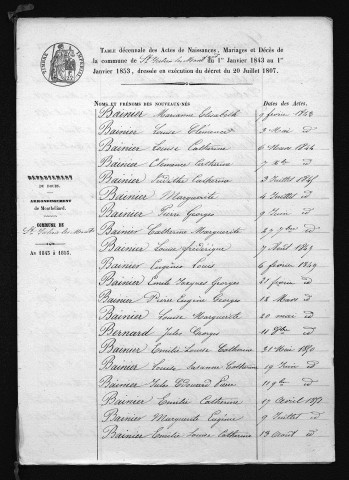 TABLE décennale des Actes de Naissances, Mariages et Décès de
la commune de du 1er Janvier 1843 au 1er
Janvier 1853, dressée en exécution du décret du 20 Juillet 1807.
NOMS ET PRÉNOMS DES NOUVEAUX-NÉS Dates des Actes.
Bainier Marianne Elisabeth 9 février 1843
Bainier Louise 2 Mai id
Bainier Louise Catherine 6 Mars 1844
Bainier Clémence Catherine 7
Bainier Catherine 2 Juillet
Bainier Marguerite 4 Juillet id
Bainier Pierre Georges 9 Juin id
Bainier Catherine Marguerite 27 id
Bainier Louise frédérique 7 Août
Bainier Eugène Louis 6 février 1849
Bainier Emile Jacques Georges 21 février id
Bainier Pierre Eugène Georges 18 Mars id
Bainier Louise Marguerite 20 mai id
Bernard Jules Georges 11 id
Bainier Emilie Louise Catherine 31 Mai
Bainier Louise Suzanne Catherine 19 Juin id
Bainier Jules Edouard Pierre 11 id
Bainier Emilie Catherine 17 Avril
Bainier Marguerite Eugénie 9 Juillet id
Bainier Emilie Louise Catherine 13 Août id
DÉPARTEMENT
DU DOUBS.
ARRONDISSEMENT
de Montbéliard.
COMMUNE
AN 1843 à 1853.